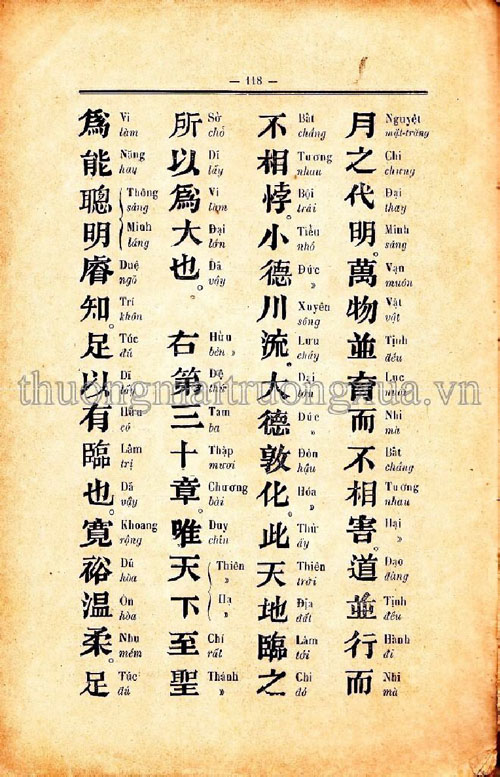 — 118 —
月之代明。萬物並育而不相害。道並行而
Nguyệt mặt-trăng Chi chưng Đại thay Minh sáng Vạn muôn Vật vật Tịnh đều Lục nuôi Nhi mà Bất chẳng Tương nhau Hại » Đạo đàng Tịnh đều Hành đi Nhi mà
不相悖。小德川流。大德敦化。此天地臨之
Bất chẳng Tương nhau Bội trái Tiểu nhỏ Đức » Xuyên sông Lưu chảy Đại lớn Đức » Đôn hậu Hóa » Thử ấy Thiên trời Địa đất Lâm tới Chi đó
所以爲大也。 右第三十章。唯天下至聖
Sở chỗ Dĩ lấy Vi làm Đại lớn Dã vậy Hữu bên » Đệ thứ Tam ba Thập mươi Chương bài Duy chỉn Thiên » Hạ » Chí rất Thánh »
爲能聰明睿知。足以有臨也。寬裕温柔。足
Vi làm Năng hay Thông sáng Minh láng Duệ ngõ Trí khôn Túc đủ Dĩ lấy Hữu có Lâm trị Dã vậy Khoang rộng Dũ hòa Ôn hòa Nhu mềm Túc đủ
thuongmaitruongxua.vn